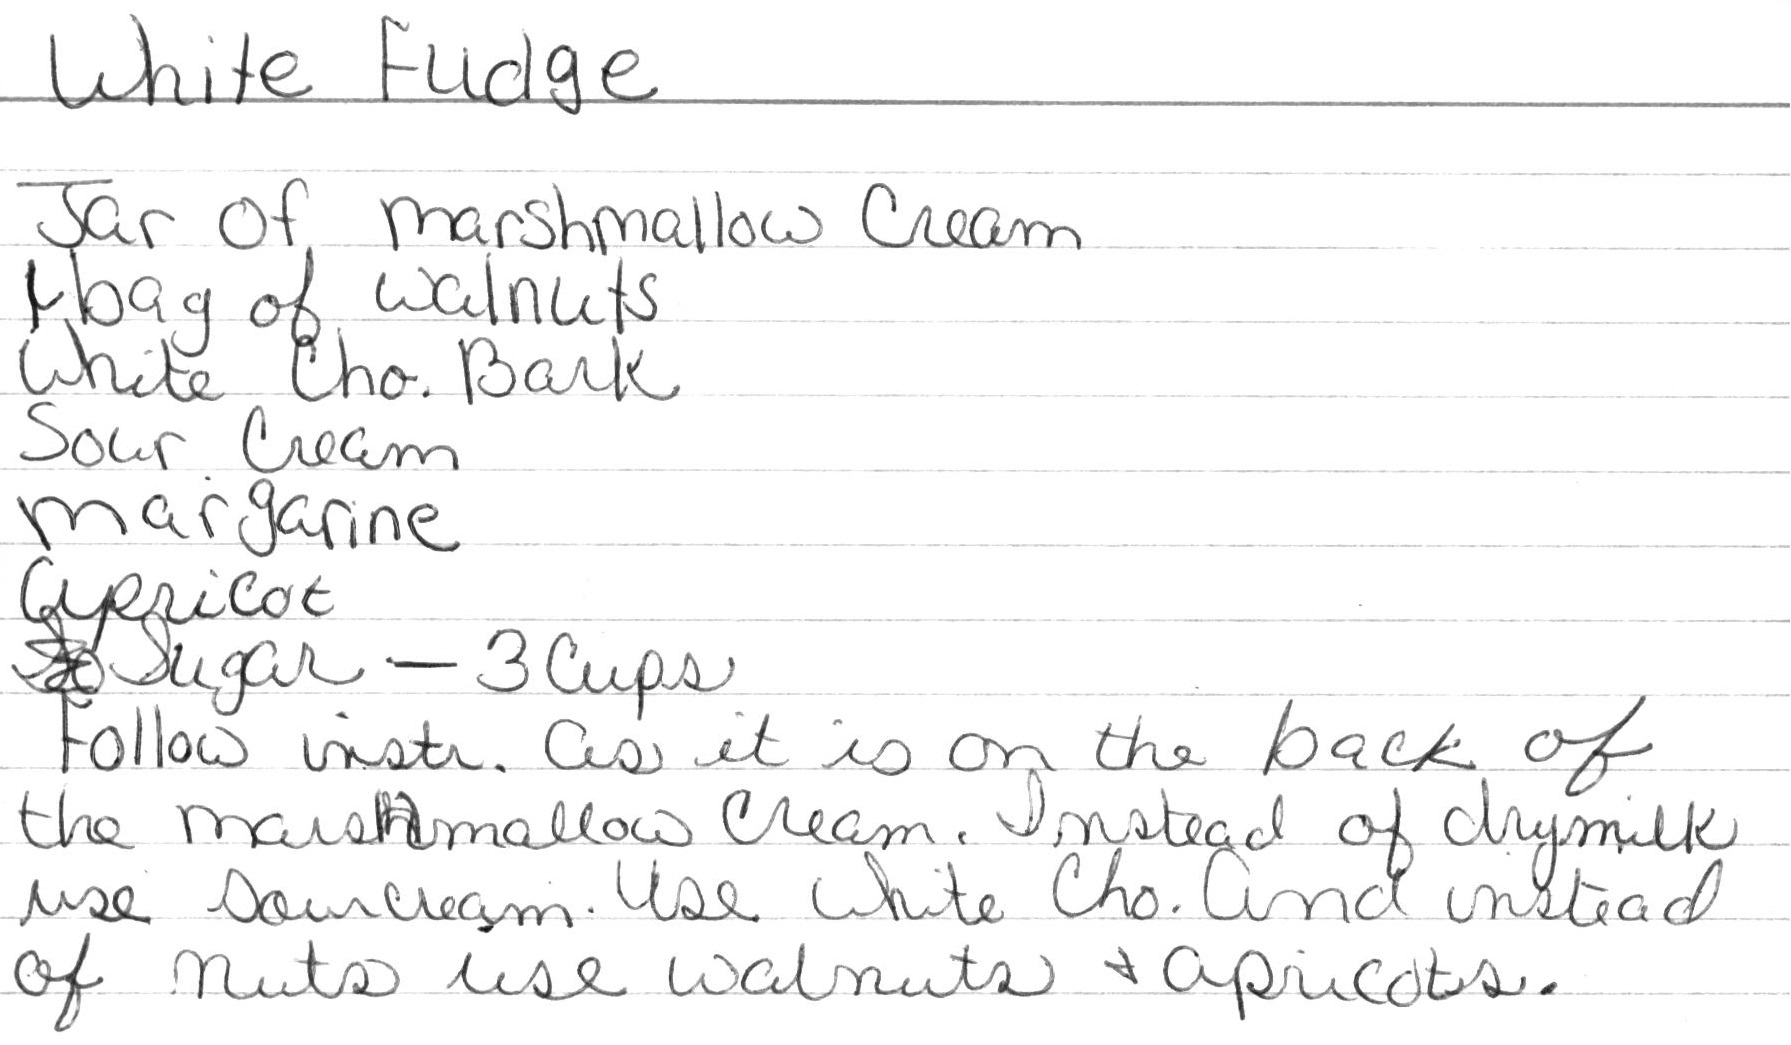 White Fudge
Jar of marshmallow Cream
1 bag of walnuts
White Cho. Bark
Sour Cream
margarine
Apricot
Sugar — 3 Cups
Follow instr. as it is on the back of
the marshmallow Cream. Instead of drymilk
use sourcream. Use white Cho. And instead
of nuts use walnuts + apricots.